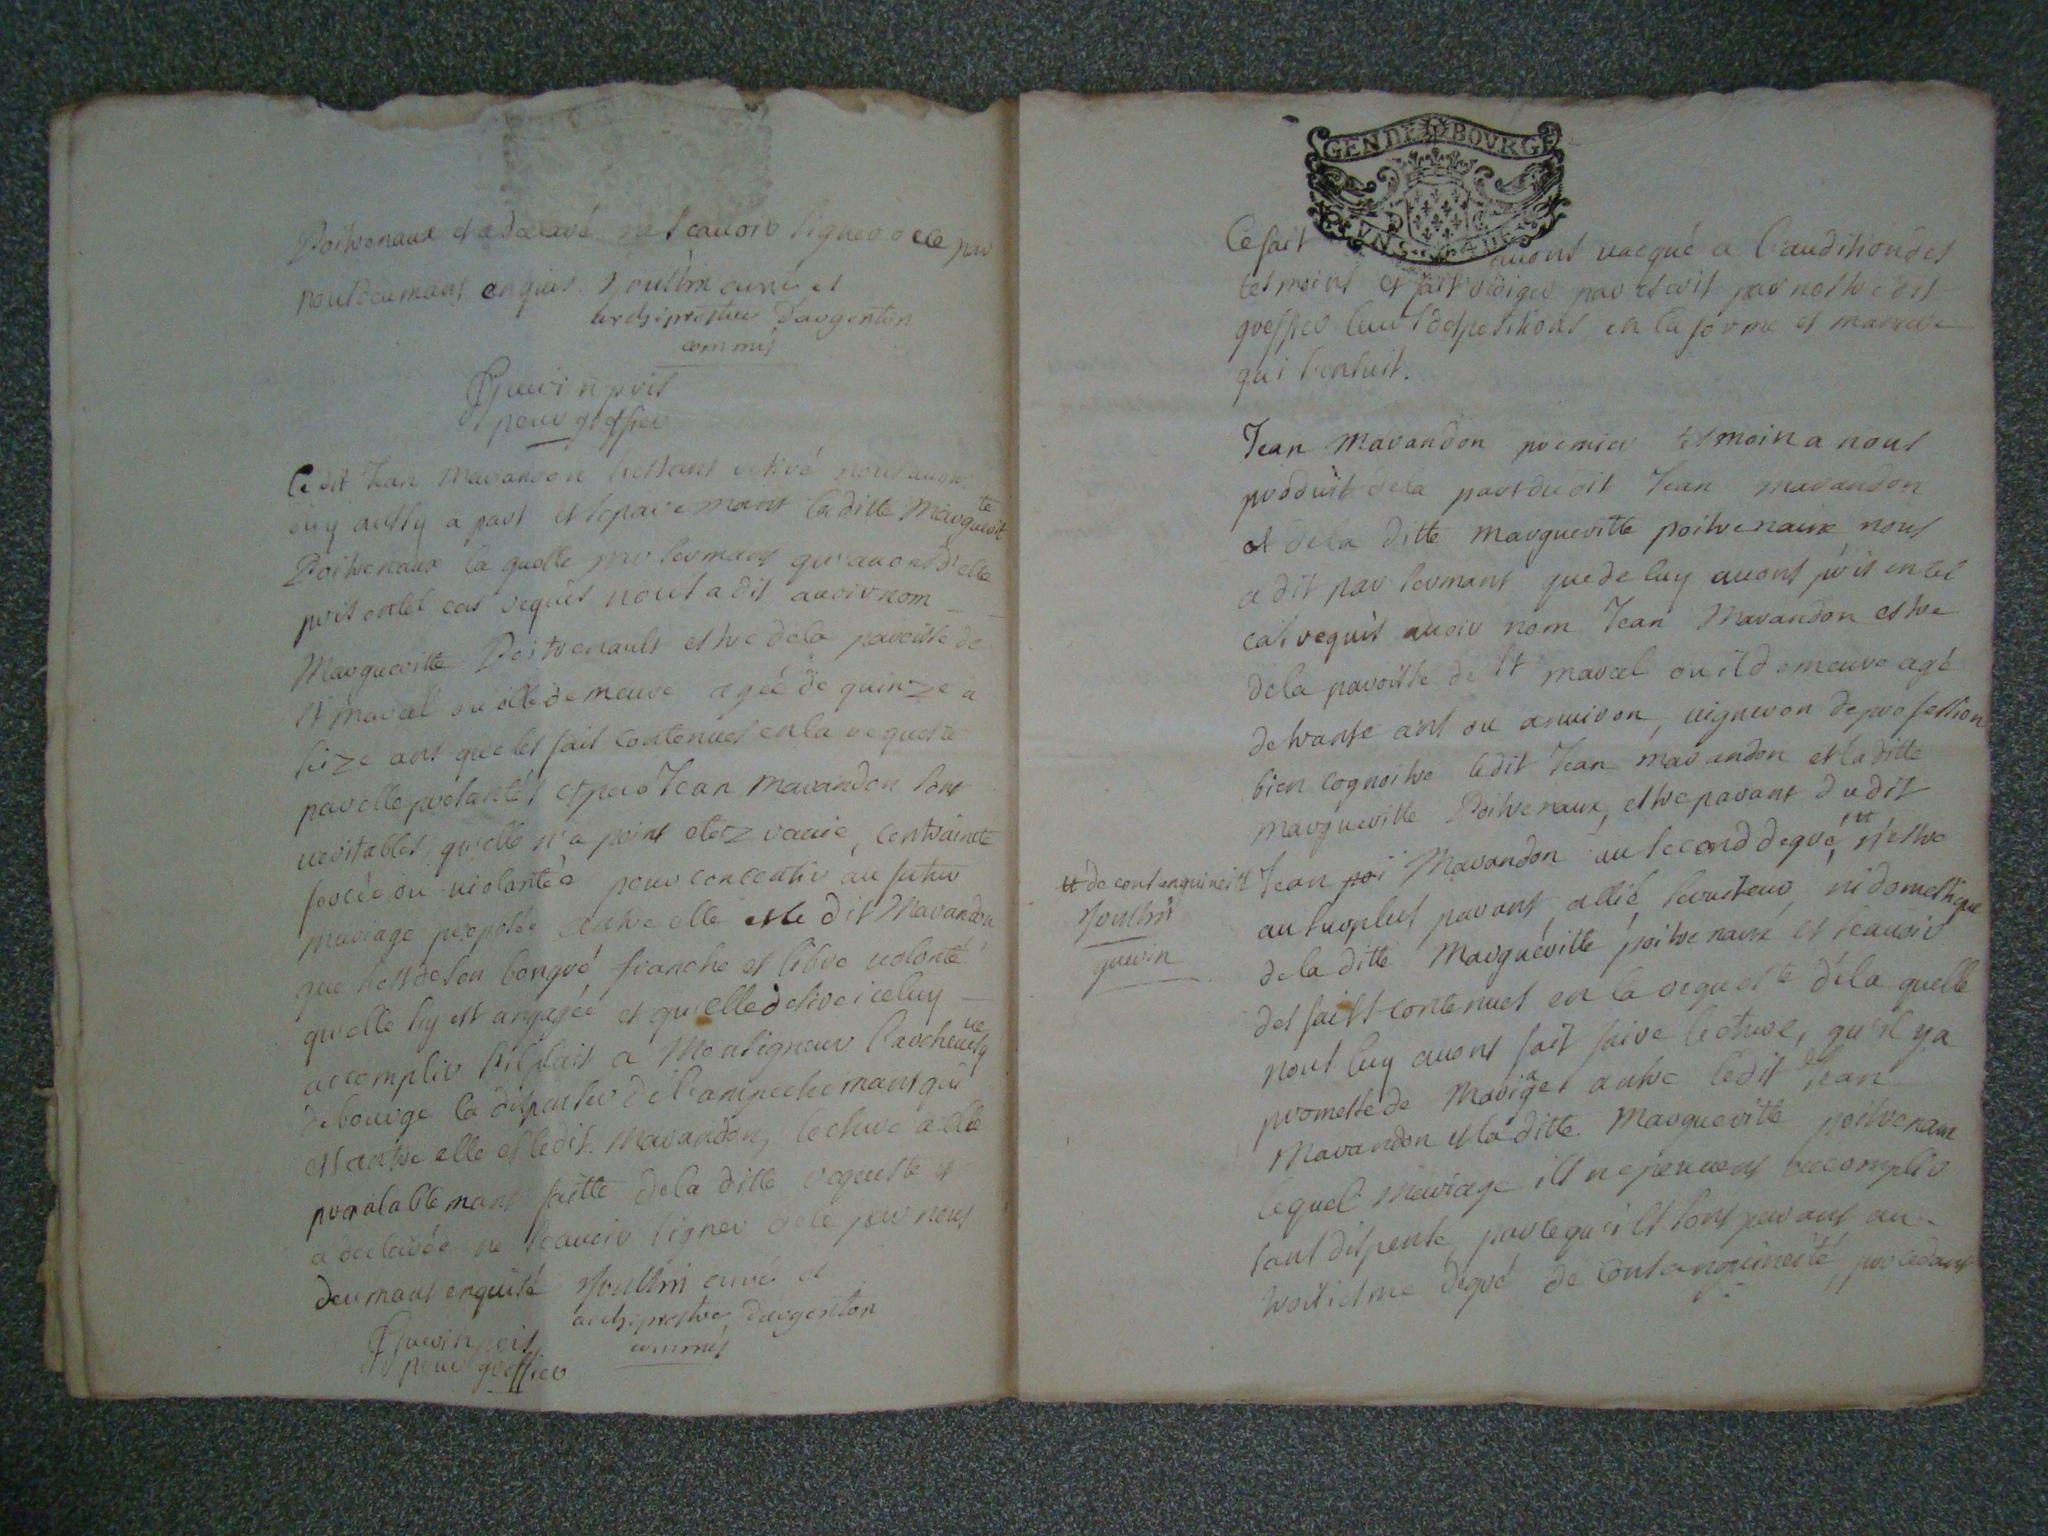 Poitrenaux et a declaré ne scavoir signer de ce par
nous deumant enquis. Joullin curé et
archiprestre d'argenton
commis
Guerin pris
pour greffier
Ledit Jean Marandon sestant retiré nous avons
ouy aussy a part et separemant laditte Marguerite
Poitrenaux la quelle par sermant qu'avons d'elle
pris en tel cas requis nous a dit avoir nom
Margueritte Poitrenault estre dela paroisse de
St Marcel ou elle demeure agée de quinze a
seize ans que les fait contenues en la requeste
par elle presantés et par Jean Marandon sont
veritables, qu'elle n'a point etez ravie, contrainte
forcée ou violantée pour concentir au futur
mariage proposée entre elle et le dit Marandon
que sest de son bongré, franche et libre volonté
qu'elle sy est angagée et qu'elle desire iceluy
accomplir s'il plait a Monsigneur l'archevesque
de bourge la dispenser de l'ampechemant qui
est antre elle et ledit. Marandon, lecture a elle
prealablemant faitte dela ditte requeste et
a declarée ne scavoir signer de ce par nous
deumant enquise Joullin curé et
archiprestre d'argenton
commis
Guerin pris
pour greffier
GEN DE BOVRGE
Ce fait avons vacqué a l'auditiondes
tesmoins et fait rediger par escrit par nostre dit
greffier leurs despositions en la forme et maniere
qui sensuit.
Jean Marandon premier tesmoin a nous
produit dela part dudit Jean marandon
et dela ditte margueritte poitrenaux nous
a dit par sermant que de luy avons pris en tel
cas requis avoir nom Jean Marandon estre
dela paroisse de St marcel ou il demeure agé
de trante ans ou anviron, vigneron de profession
bien cognoitre ledit Jean marandon et laditte
margueritte Poitrenaux, estre parant dudit
Jean poi Marandon au second degré, tt n'estre
tt de consanguineité
Joullin
guerin
au surplus parant, allié, serviteur, ni domestique
dela ditte Margueritte poitrenaux et scavoir
des faits contenues en la requeste de la quelle
nous luy avons fait faire lecture, qu'il y a
promesse de Mariage antre ledit Jean
Marandon et la ditte. Margueritte poitrenaux
lequel Mariage ils ne peuvent accomplir
sans dispense, parcequ'ils sont parans au
troisiesme degré de consanguineité, procedant